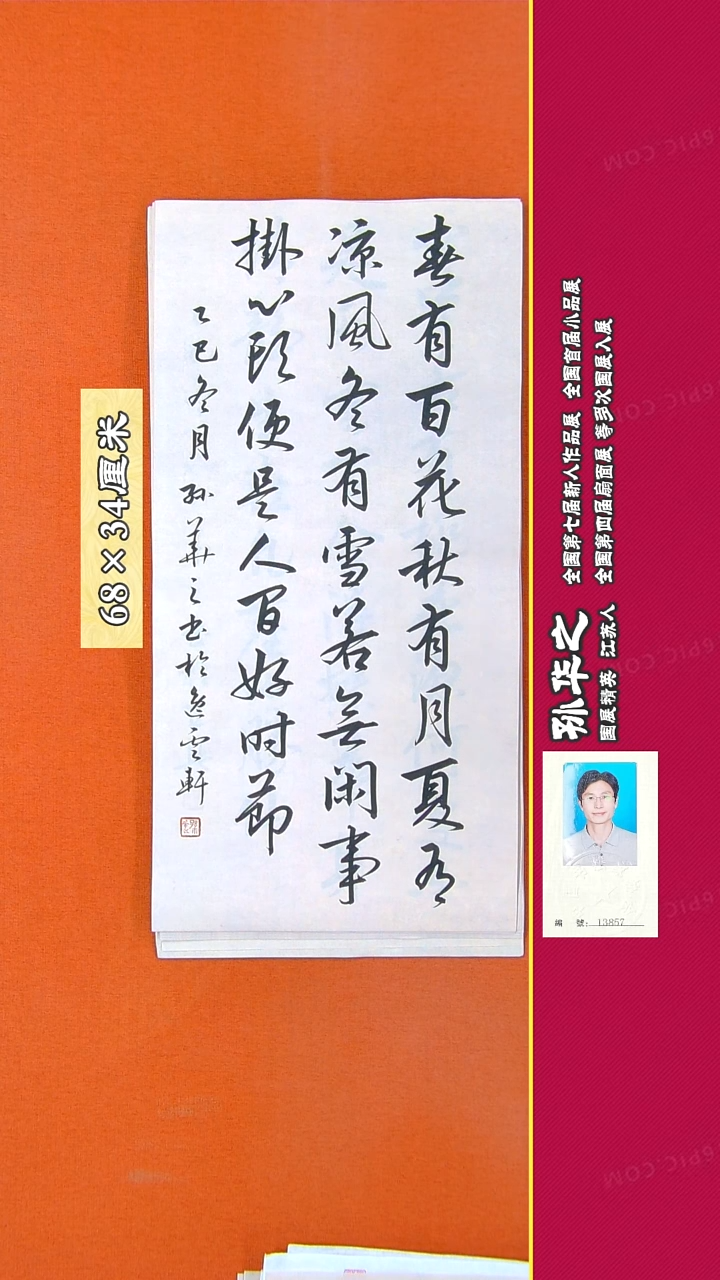 春有百花秋有月夏有
凉風冬有雪若無闲事
掛心頭便是人间好时節
乙巳冬月孙華之书於逸雲軒
68×34厘米
孙华之
國展精英 江苏人
全國第七届新人作品展 全國首届小品展
全國第四届扇面展 等多次國展入展
編 號: 13857